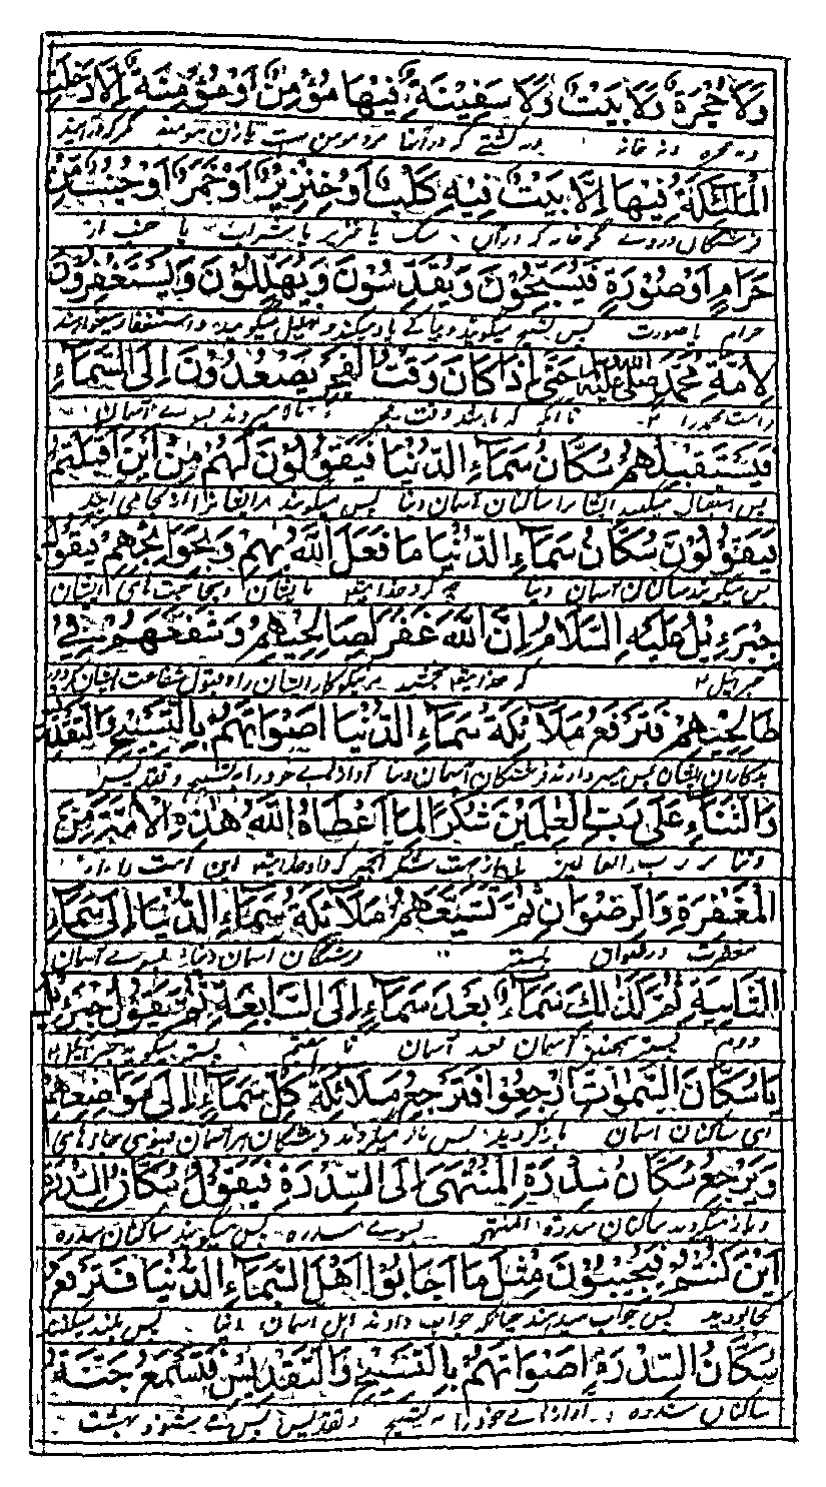 وَلَا حُجْرَةٌ وَلَا بَيْتٌ وَلَا سَفِيْنَةٌ فِيْهَا مُؤْمِنٌ اَوْ مُؤْمِنَةٌ اِلَّا دَخَلَتْ
ونه حجره ونه خانه ونه کشتی که در آنها مرد مومن ست یا زن مومنه مگر که درآیند
الْمَلٰئِكَةُ فِيْهَا اِلَّا بَيْتٌ فِيْهِ كَلْبٌ اَوْ خِنْزِيْرٌ اَوْ خَمْرٌ اَوْ جُنُبٌ مِّنْ
فرشتگان در وے مگر خانه که در آن سگ یا خنزیر یا شراب یا جنب از
حَرَامٍ اَوْ صُوْرَةٍ فَيُسَبِّحُوْنَ وَيُقَدِّسُوْنَ وَيُهَلِّلُوْنَ وَيَسْتَغْفِرُوْنَ
حرام یا صورت پس تسبیح میگویند و بپاکے یاد میکنند و تهلیل میگویند و استغفار میخواهند
لِاُمَّةِ مُحَمَّدٍ صَلَّى اللّٰهُ عَلَيْهِ حَتّٰى اِذَا كَانَ وَقْتُ الْفَجْرِ يَصْعُدُوْنَ اِلَى السَّمَاءِ
تا آنکه که باشد وقت فجر بالا میروند بسوے آسمان
فَيَسْتَقْبِلُهُمْ سُكَّانُ سَمَاءِ الدُّنْيَا فَيَقُوْلُوْنَ لَهُمْ مِنْ اَيْنَ اَقْبَلْتُمْ
پس استقبال میکنند ایشانرا ساکنان آسمان دنیا پس میگویند مر ایشانرا از کجا می آیید
فَيَقُوْلُوْنَ سُكَّانُ سَمَاءِ الدُّنْيَا مَا فَعَلَ اللّٰهُ بِهِمْ وَبِحَوَائِجِهِمْ فَيَقُوْلُ
پس میگویند ساکنان آسمان دنیا چه کرد خدایتعالی بایشان و بحاجتهای ایشان
جِبْرَءِيْلُ عَلَيْهِ السَّلَامُ اِنَّ اللّٰهَ غَفَرَ لِصَالِحِيْهِمْ وَشَفَّعَهُمْ فِيْ
جبرائیل که خدایتعالی بخشید مر نیکوکار ایشان را و قبول شفاعت ایشان کرد در
طَالِحِيْهِمْ فَتَرْفَعُ مَلَائِكَةُ سَمَاءِ الدُّنْيَا اَصْوَاتَهُمْ بِالتَّسْبِيْحِ وَالتَّقْدِيْسِ
بدکاران ایشان پس بردارند فرشتگان آسمان دنیا آوازهاے خود را بتسبیح و تقدیس
وَالثَّنَاءِ عَلٰى رَبِّ الْعٰلَمِيْنَ شُكْرًا لِمَا اَعْطَاهُ اللّٰهُ هٰذِهِ الْاُمَّةَ مِنَ
وثنا بر رب العالمین شکر آنچه که داد خدایتعالی این امت را از
الْمَغْفِرَةِ وَالرِّضْوَانِ ثُمَّ تُشَيِّعُهُمْ مَلَائِكَةُ سَمَاءِ الدُّنْيَا اِلٰى سَمَاءِ
مغفرت و رضوان پستر فرشتگان آسمان دنیا بسوے آسمان
الثَّانِيَةِ ثُمَّ كَذٰلِكَ سَمَاءً بَعْدَ سَمَاءٍ اِلَى السَّابِعَةِ ثُمَّ يَقُوْلُ جِبْرَئِيْلُ
دوم پستر همچنین آسمان بعد آسمان تا هفتم پستر میگوید جبرئیل
يَا سُكَّانَ السَّمٰوٰتِ ارْجِعُوْا فَتَرْجِعُ مَلَائِكَةُ كُلِّ سَمَاءٍ اِلٰى مَوَاضِعِهِمْ
ای ساکنان آسمان بازگردید پس باز میگردند فرشتگان هر آسمان بسوی جاهای
وَيَرْجِعُ سُكَّانُ سِدْرَةِ الْمُنْتَهٰى اِلَى السِّدْرَةِ فَيَقُوْلُ سُكَّانُ السِّدْرَةِ
و باز میگردند ساکنان سدرة المنتهی بسوے سدره پس میگویند ساکنان سدره
اَيْنَ كُنْتُمْ فَيُجِيْبُوْنَ مِثْلَ مَا اَجَابُوْا اَهْلَ السَّمَاءِ الدُّنْيَا فَتَرْفَعُ
کجا بودید پس جواب میدهند چنانکه جواب دادند اهل آسمان دنیا پس بلند میکنند
سُكَّانُ السِّدْرَةِ اَصْوَاتَهُمْ بِالتَّسْبِيْحِ وَالتَّقْدِيْسِ فَتَسْمَعُ جَنَّةُ
ساکنان سدره آوازهاے خود را به تسبیح و تقدیس پس مے شنود بهشت